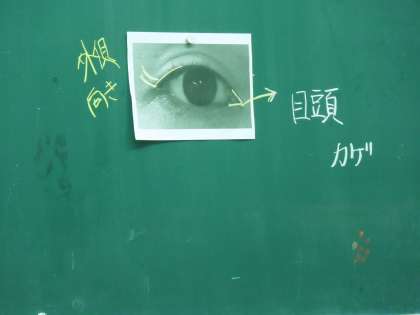 外側
向き
目頭
カゲ